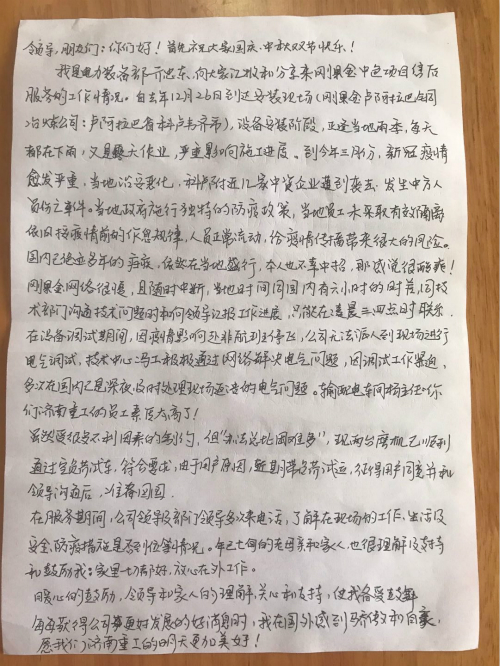 领导,朋友们:你们好!首先祝大家国庆、中秋双节快乐!
我是电力装备部乔进东,向大家汇报和分享来刚果金中色项目售后
服务的工作情况。自去年12月26日到达安装现场(刚果金卢阿拉巴铜
冶炼公司:卢阿拉巴省科卢韦齐市),设备安装阶段,正逢当地雨季,每天
都在下雨,又是露天作业,严重影响施工进度。到今年三月份,新冠疫情
愈发严重,当地治安恶化,科卢附近几家中资企业遭到袭击,发生中方人
员伤亡事件。当地政府施行独特的防疫政策,当地员工未采取有效隔离
依旧按疫情前的作息规律,人员正常流动,给疫情传播带来很大的风险。
国内已绝迹多年的疟疾,依然在当地盛行,本人也不幸中招,那感觉很酸爽!
刚果金网络很慢,且随时中断,当地时间同国内有六小时的时差,同技
术部门沟通技术问题时和向领导汇报工作进展,只能在凌晨三四点时联系。
在设备调试期间,因疫情影响赴非航班停飞,公司无法派人到现场进行
电气调试,技术中心冯工积极通过网络解决电气问题,因调试工作紧迫,
多次在国内已是深夜,及时处理现场返造的电气问题。输配电车间杨主任:你
们济南重工的员工素质太高了!
虽然受很多不利因素的制约,但“办法总比困难多”,现两台磨机已顺利
通过空负荷试车,符合要求,由于用户原因,延期带负荷试运,征得用户同意并和
领导沟通后,准备回国.
在服务期间,公司领导及部门领导多次来电话,了解在现场的工作、生活及
安全、防疫措施是否到位等情况。年已七旬的老母亲和家人,也很理解及支持
和鼓励我:家里一切都好,放心在外工作。
暖心的鼓励,领导和家人的理解、关心和支持,使我备受鼓舞
每每获得公司更好发展的好消息时,我在国外感到骄傲和自豪,
愿我们济南重工的明天更加美好!